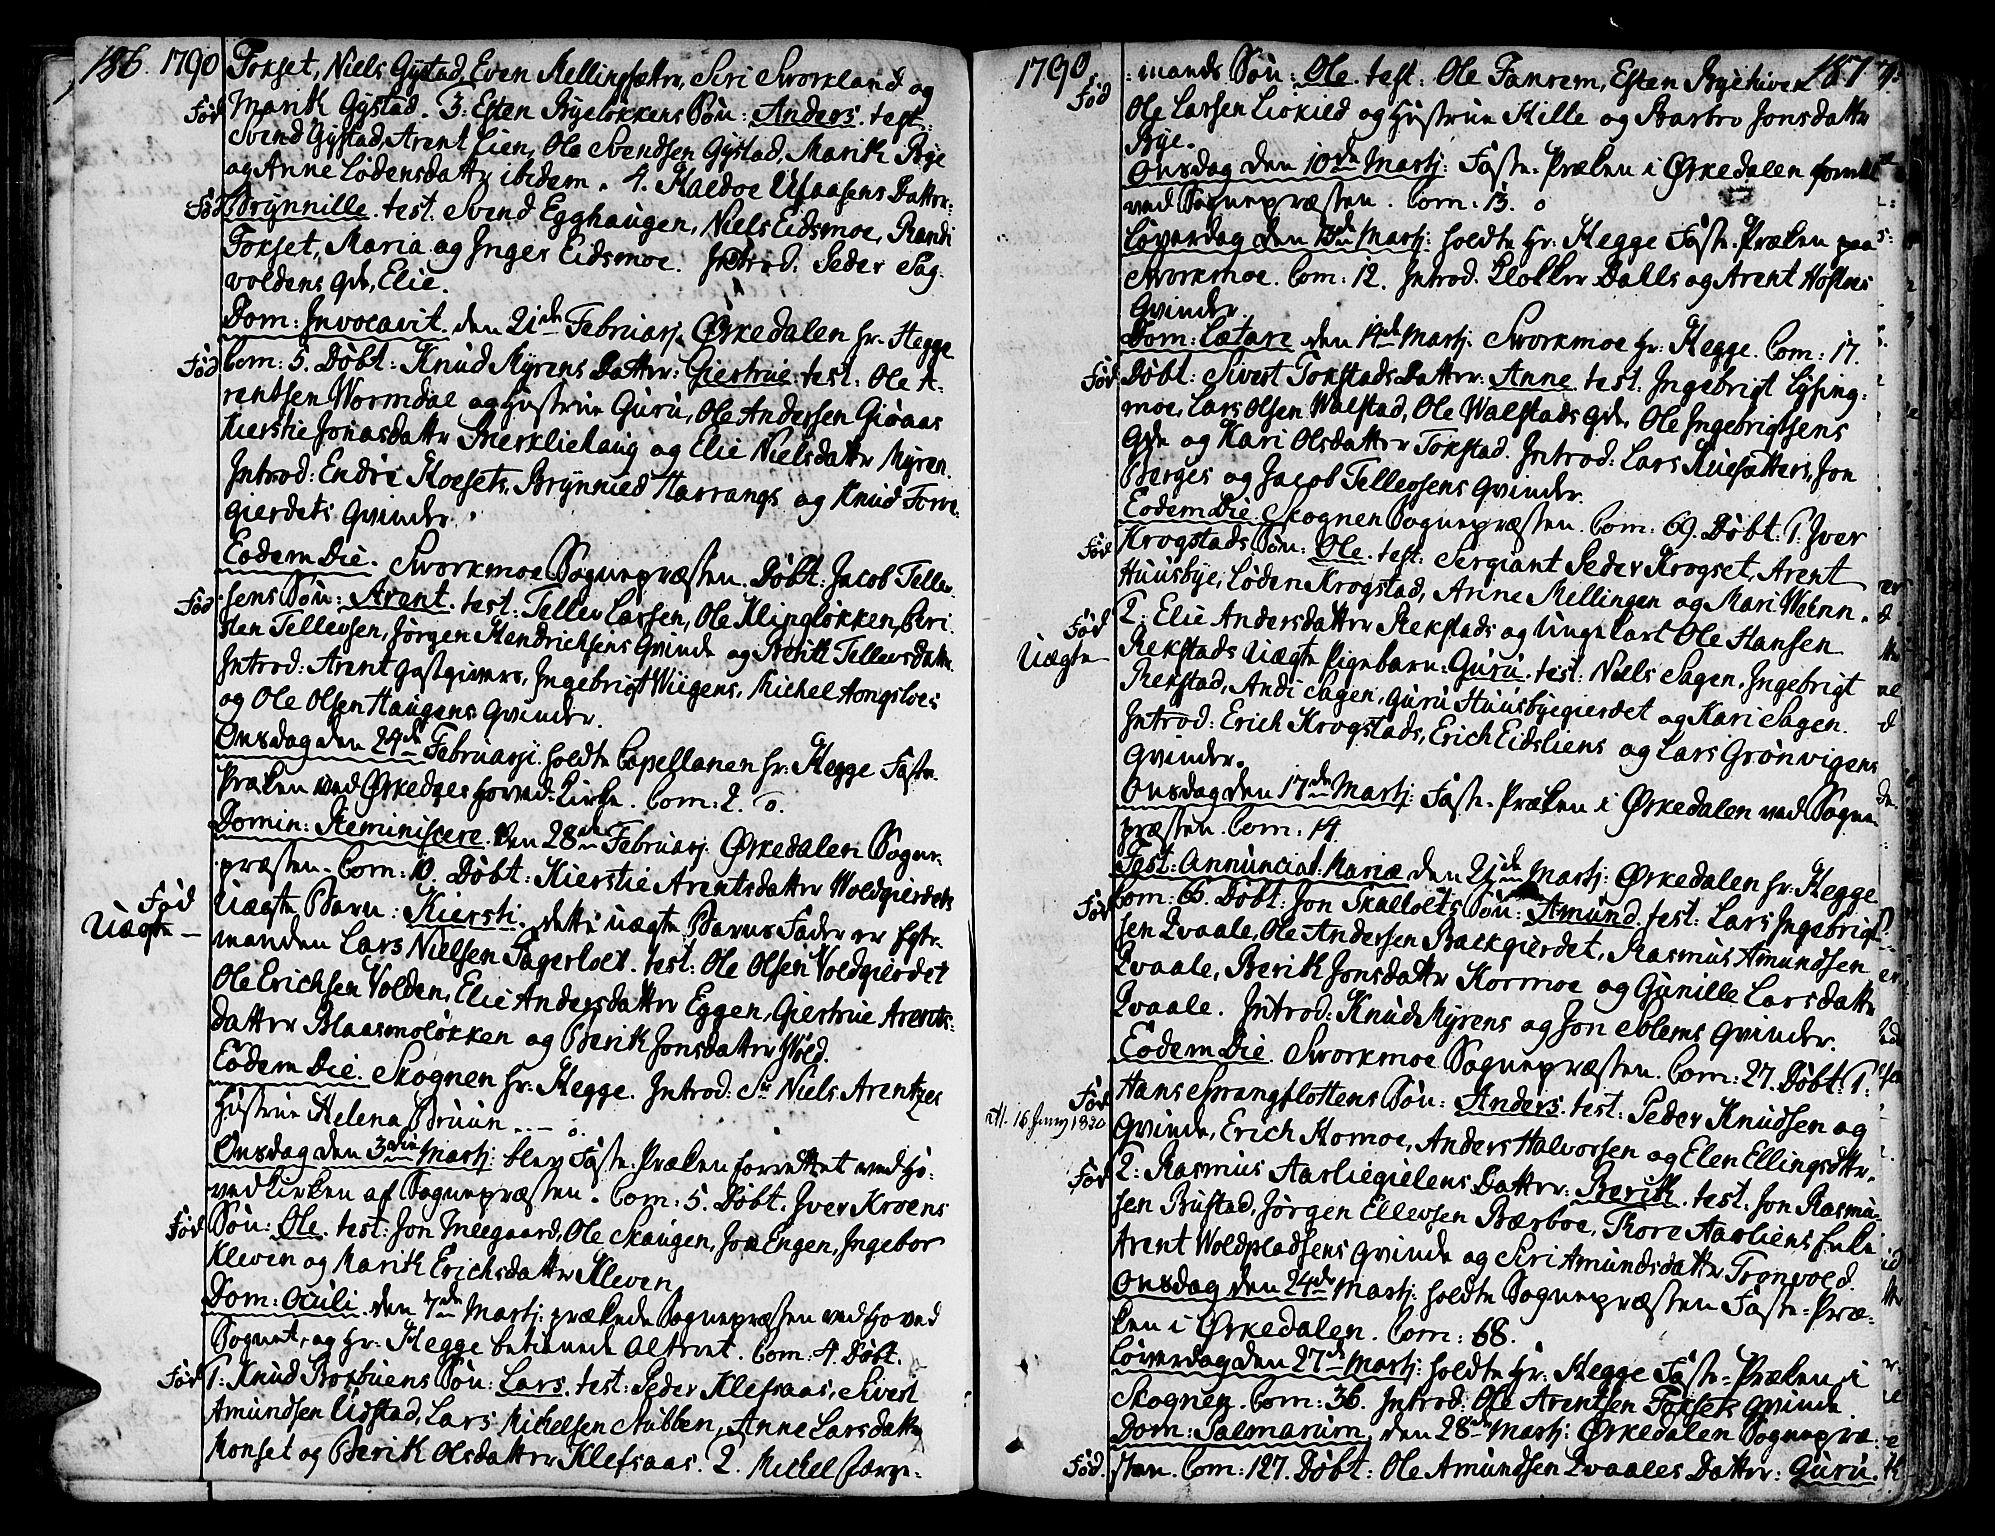 186. 1790 Foxset, Niels Gÿstad, Even Mellingsætter, Siri Svorkland og
Marith Gÿstad. 3. Esten Byeløkkens Søn: Anders. test:
Fød
Svend Gÿstad, Arent Lien, Ole Svendsen Gÿstad, Marith Bye
og Anne Lodensdatter ibidem. 4. Haldoe Ufaasens Datter:
Fød Brynnille. test. Svend Egghaugen, Niels Eidsmoe, Randi
Foxset, Maria og Inger Eidsmoe. Introd: Peder Sag-
voldens qde, Elie.
Dom: Invocavit. den 21de Februarj. Ørkedalen hr. Hegge
Com: 5. Døbt: Knud Myrens Datter: Giertrue. test: Ole A-
Fød
rentsen Wormdal og Hustrue Guru, Ole Andersen Gioaas
Kierstie Jonasdatter Merkliehaug og Elie Nielsdatter Myren.
Introd: Endre Hoesets, Brynnild Harrangs og Knud Forre-
gierdets Qvinder.
Eodem Die. Svorkmoe Sognepræsten. Døbt: Jacob Tellev-
sens Søn: Arent. test: Tellev Larsen, Ole Klingløkken, Beri
Fød
sten Tellevsen, Jørgen Hendrichsens Qvinde og Berith Tellevsdatter.
Introd: Arent gastgivers, Ingebrigt Wiigens, Michel Hongsloes
og Ole Olsen Haugens Qvinder.
Onsdag den 24de Februarji holdte Capellanen hr: Hegge Faste-
Præken ved Ørkedals Hoved-Kirke. Com: 2. o.
Domin: Reminiscere. den 28de Februarj. Ørkedalen Sogne-
præsten. Com: 10. Døbt: Kierstie Arentsdatter Woldgierdets
Fød
Uægte Barn: Kiersti. dette uægte Barns Fader er Egte-
Uægte –
manden Lars Nielsen Fagerholt. test: Ole Olsen Voldgierdet
Ole Erichsen Volden, Elie Andersdatter Eggen, Giertrue Arents-
datter Blaasmoløkken og Berith Jonsdatter Wold.
Eodem Die. Skognen hr: Hegge. Introd: Sr Niels Arentzes
Hustrue Helena Bruun. - - - o.
Onsdag den 3die Martj: blev Faste-Præken forrettet ved Ho-
vedkirken af Sognepræsten. Com: 5. Døbt: Iver Kroens
Fød Søn: Ole. test: Jon Meegaard, Ole Skaugen, Jon Engen, Ingebor
Kleven og Marith Erichsdatter Kleven
Dom: Oculi. den 7de Martj: prækede Sognepræsten ved Hoved
Sognet, og hr: Hegge betiente Alteret. Com: 4. Døbt.
Fød 1. Knud Boxbuens Søn: Lars. test: Peder Klefsaas, Sivert
Amundsen Udstad, Lars Michelsen Stubben, Anne Larsdatter
Monset og Berith Olsdatter Klefsaas. 2. Michel Jærge-
1790 -mands Søn: Ole. test: Ole Fanrem, Esten Bye 187.
Fød
Ole Larsen Liokild og Hustrue Kille og Barbro Jonsdatter
Bye.
Onsdag den 10de Martj: Faste-Præken i Ørkedalen
ved Sognepræsten. Com: 13. o
Løverdag den 13de Martj: holdte hr: Hegge Faste-Præken paa
Svorkmoe. Com: 12. Introd. Klokker Dalls og Arent Hofnes
Qvinder.
Dom: Lætare den 14de Martj. Svorkmoe hr: Hegge. Com: 17.
Fød Døbt: Sivert Foxstads Datter: Anne. test: Ingebrigt Lysing-
moe, Lars Olsen Walstad, Ole Walstads qde, Ole Ingebrigtsens
qde og Kari Olsdatter Foxstad. Introd: Lars Ruesætters, Jon
Berges og Jacob Tellevsens Qvinder.
Eodem Die Skognen Sognepræsten. Com: 69. Døbt: 1. Iver
Krogstads Søn: Ole. test: Sergiant Peder Krogset, Arent
Fød
Huusbye, Loden Krogstad, Anne Mellingen og Mari Wenn.
2. Elie Andersdatter Rekstads og Ungekarl Ole Hansen
Fød
Rekstads Uægte Pigebarn: Guru. test: Niels Sagen, Ingebrigt
Uægte –
Rekstad, Andi Sagen, Guru Huusbyegierdet og Kari Sagen.
Introd: Erich Krogstads, Erich Eidsliens og Lars Grønvigens
Qvinder.
Onsdag den 17de Martj: Faste-Præken i Ørkedalen ved Sogne-
præsten. Com: 14.
Fest: Annunciat: Mariæ den 21de Martj: Ørkedalen hr: Hegge
Com: 66. Døbt: Jon Skallolts Søn: Amund. test: Lars Ingebrigt-
Fød
sen Qvaale, Ole Andersen Bakgierdet, Rasmus Amundsen
Qvaale, Berith Jonsdatter Kormoe og Gunille Larsdatter
Qvaale. Introd: Knud Myrens og Jon Solems Qvinder.
Eodem Die. Svorkmoe Sognepræsten. Com: 27. Døbt: 1.
Fød Hans Sprangflottens Søn: Anders. test: Peder Knudsen og
16 Juny 1820 Qvinde, Erich Komoe, Anders Halvorsen og Elen Ellingsdtr.
Fød 2. Rasmus Aarliegielens Datter: Berith. test: Jon Rasmu-
sen Bustad, Jørgen Ellevsen Bærboe, Thore Aarliens Enke
Arent Woldpladsens Qvinde og Siri Amundsdatter Tronvold.
Onsdag den 24de Martj: holdte Sognepræsten Faste-Præ-
ken i Ørkedalen. Com: 68.
Løverdag den 27de Martj: holdte hr: Hegge Faste-Præken i
Skognen. Com: 36. Introd: Ole Arentsen Foxsets Qvinde.
Dom: Palmarum. den 28de Martj: Ørkedalen Sognepræ-
Fød. sten. Com: 127. Døbt: Ole Amundsen Qvaales Datter: Guru.